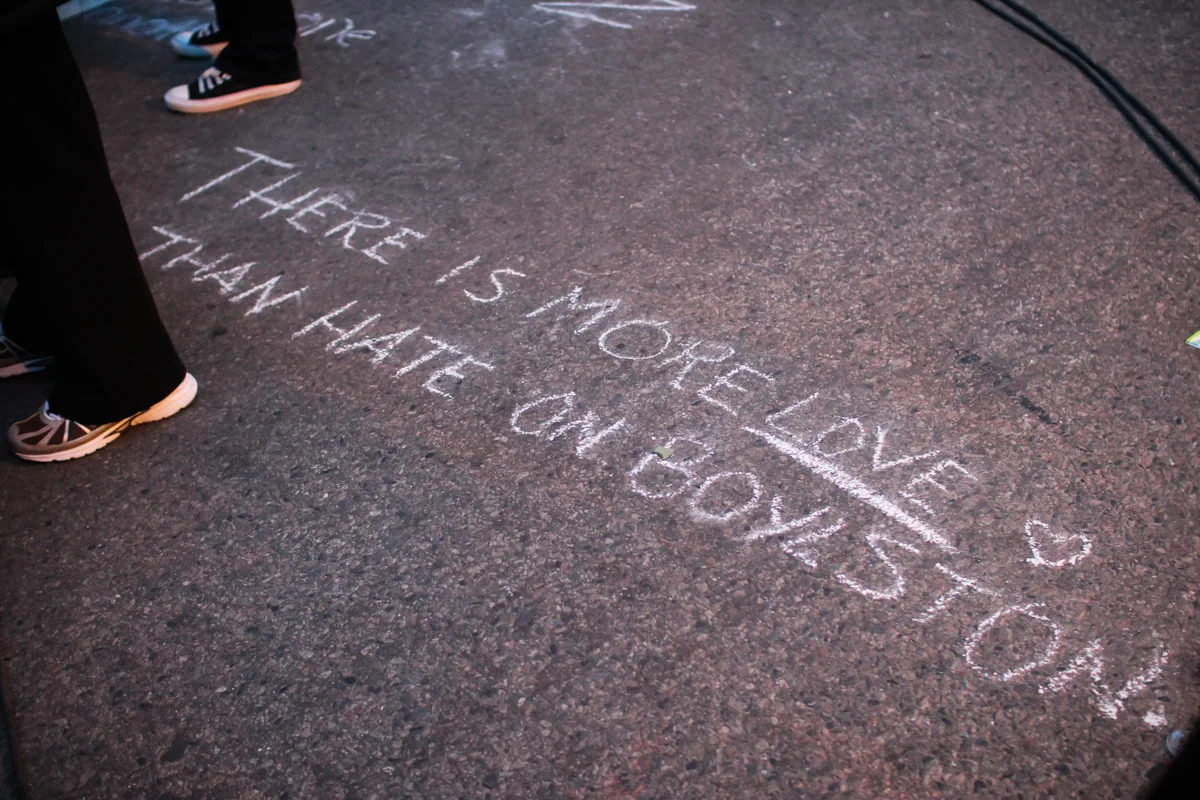 THERE IS MORE LOVE
THAN HATE ON BOYLSTON!